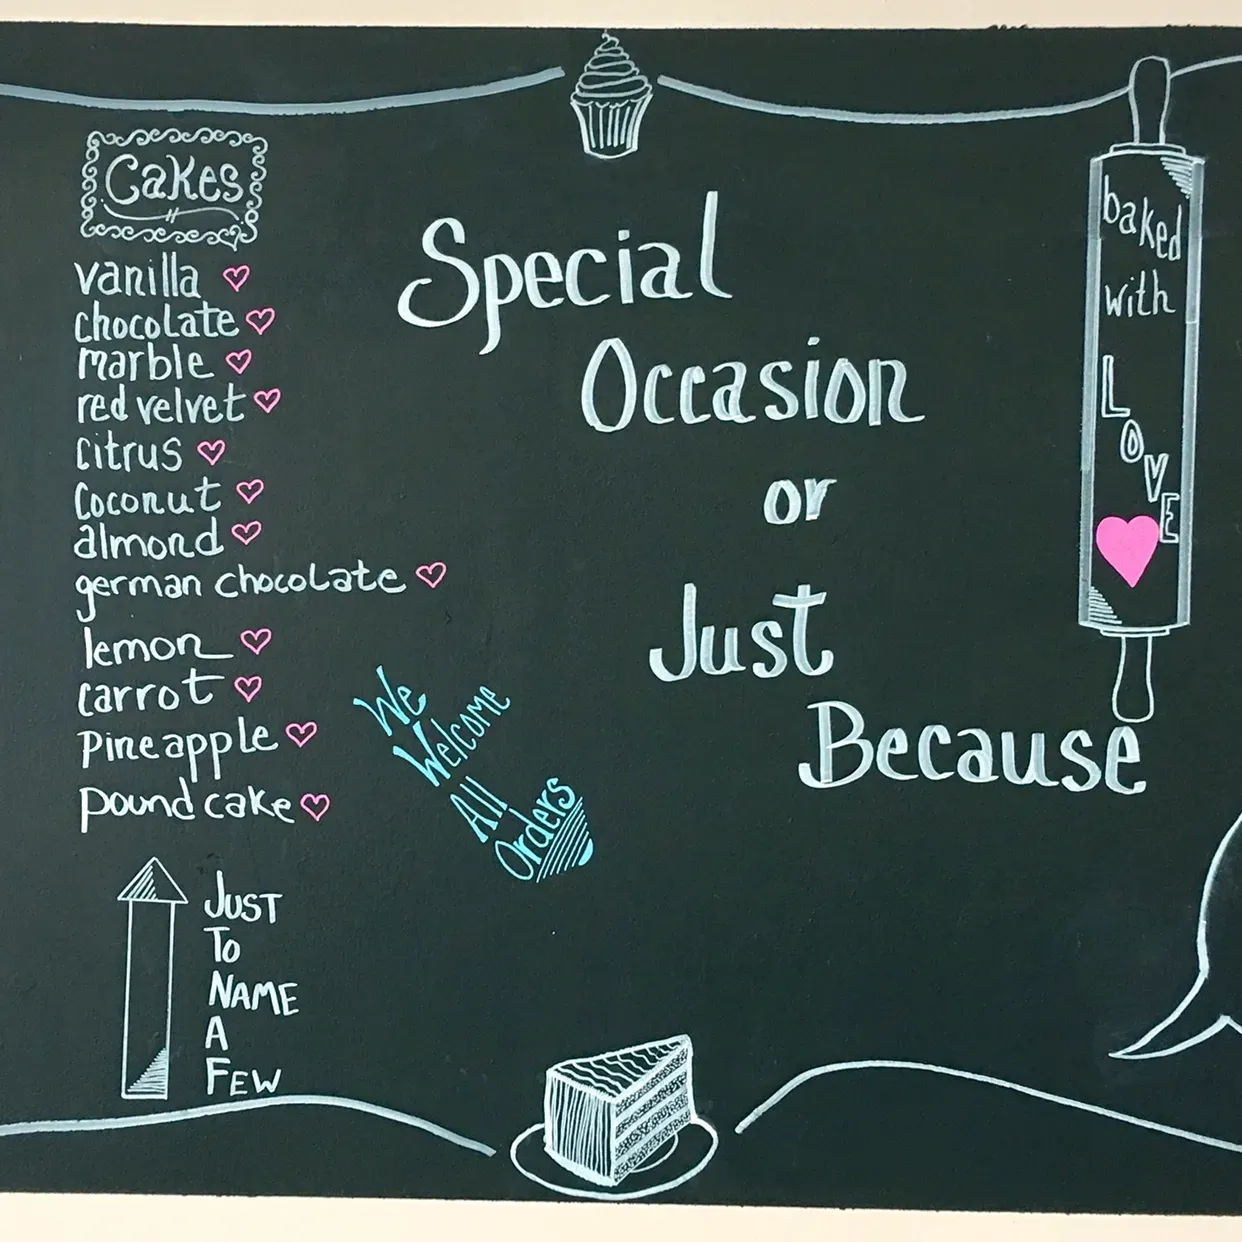 Cakes
vanilla
chocolate
marble
red velvet
citrus
coconut
almond
german chocolate
lemon
carrot
pineapple
pound cake
JUST
To
NAME
A
FEW
We
Welcome
All
Orders
Special
Occasion
or
Just
Because
baked
with
LOVE